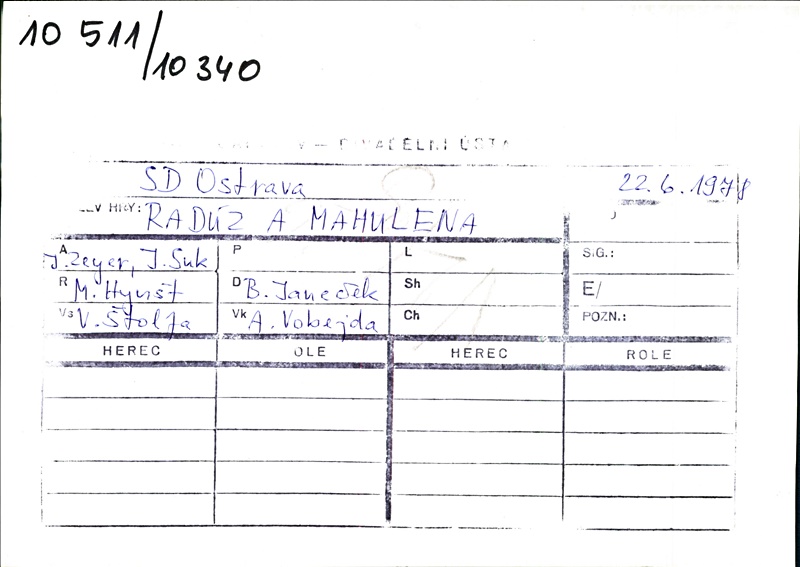 10 511/10 340
DIVADELNÍ ÚSTA
SD Ostrava 22.6.1978
EV HRY: RADÚZ A MAHULENA
A J. Zeyer, J. Suk P L SIG.:
R M. Hynšt D B. Janeček Sh E/
Vs V. Štolfa Vk A. Vobejda Ch POZN.:
HEREC OLE HEREC ROLE